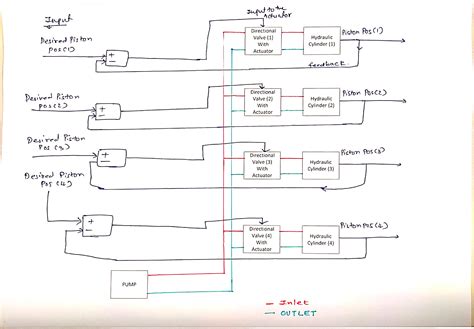 Input
Desired Piston
Pos(1)
+
-
Input to the
Actuator
Directional
Valve (1)
With
Actuator
Hydraulic
Cylinder (1)
Piston Pos(1)
feedback
Desired Piston
Pos(2)
+
-
Directional
Valve (2)
With
Actuator
Hydraulic
Cylinder (2)
Piston Pos(2)
Desired Piston
Pos (3)
+
-
Directional
Valve (3)
With
Actuator
Hydraulic
Cylinder (3)
Piston Pos(3)
Desired Piston
Pos (4)
+
-
Directional
Valve (4)
With
Actuator
Hydraulic
Cylinder (4)
Piston Pos(4)
PUMP
- Inlet
- OUTLET